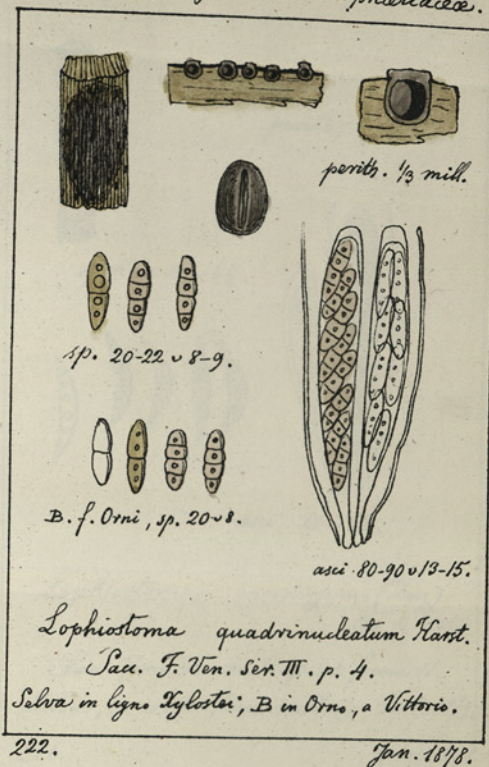 perith. 1/3 mill.
sp. 20-22 ν 8-9.
B. f. Orni, sp. 20 ν 8.
asci 80-90 ν 13-15.
Lophiostoma quadrinucleatum Karst.
Sacc. F. Ven. Ser. III. p. 4.
Selva in ligno Xylostei; B in Orno, a Vittorio.
222.
Jan. 1878.